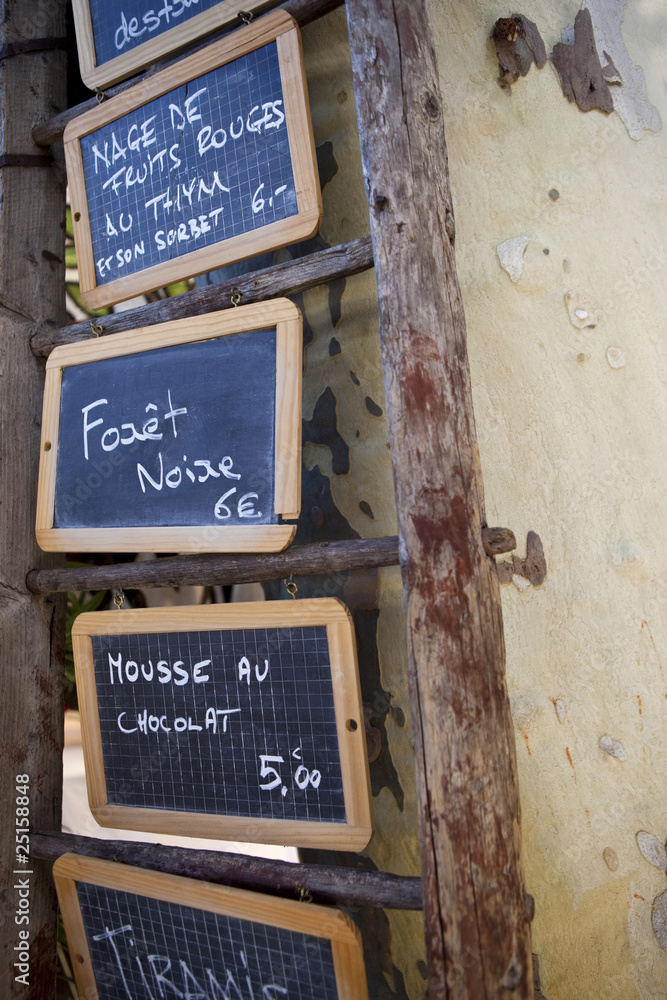 NAGE DE
FRUITS ROUGES
AU THYM
ET SON SORBET 6.-
Forêt
Noire
6€
MOUSSE AU
CHOCOLAT
5,€00
TIRAMIS
Adobe Stock | #25158848